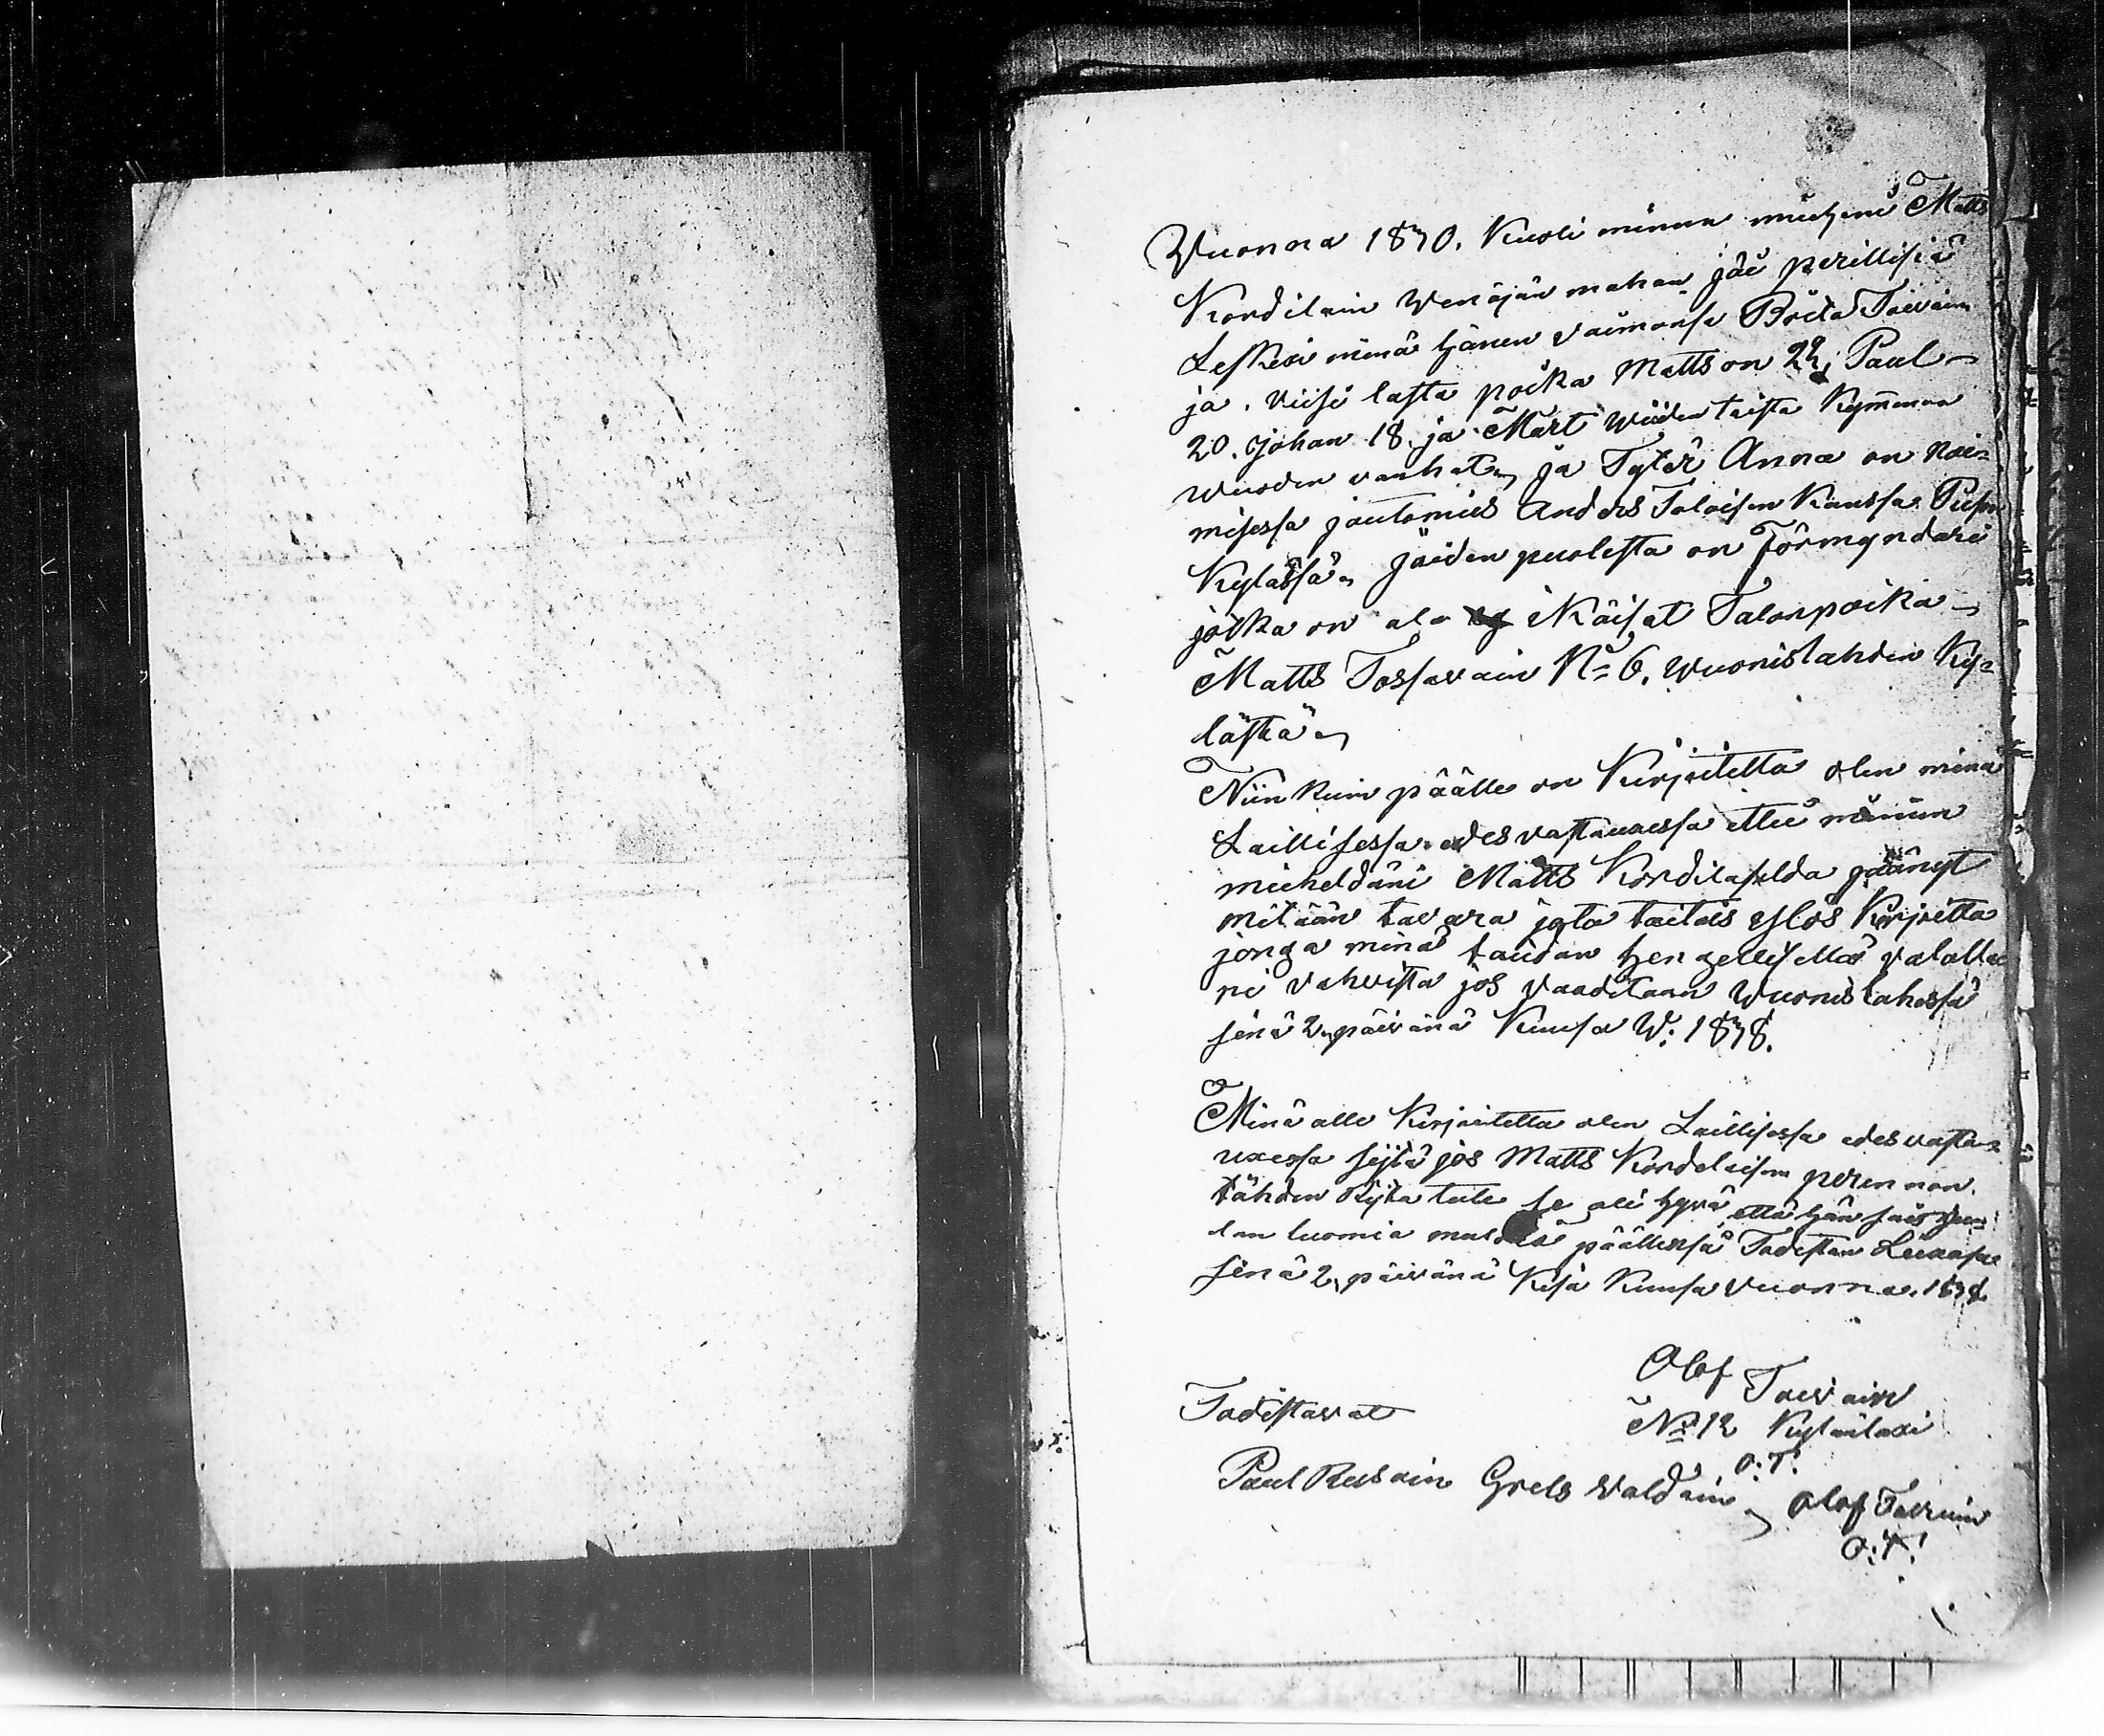 Wuonna 1870. Kuoli minun miehenï Matts
Kordilain Wenäjän mahan jäi perillisiä
Leskexi minä hänen vaimonsa Brita Toivain
ja. viisi lasta poika Matts on 22, Paul
20. Johan 18. ja Mårt wiiden toista Kymmenen
wuoden vanhat, ja Tytär Anna on nai=
misessa joutomies Anders Toloisen Kanssa
Kylässä, Jäiden puolesta on Förmyndäri
jotka on ala Näisat Talonpoika
Matts Tossavain N=6, wuonislahden Ky=
lästä,
Niin kuin päälle on Kirjoitettu olen minä
Laillisessa edesvastauxessa ettei minun
mieheldäni Matts Kordilaselda jäänyt
mitään tavara jota taitais ylös Kirjoitta
jonga minä taidan hengellisellä valalla
ni vahvista jos vaaditaan Wuonislahessa
sinä 2, päivänä Kuusa W: 1878.
Minä alle Kirjoitettu olen Laillisessa edesvasta=
uxessa siitä jos Matts Kordelaisen perun non.
tähden Kysta tule se oli hyvä että hän sais
lan luomia päällensä Todistan Liixasa
sinä 2, päivänä Kesä Kuusa vuonna. 1878.
Olof Toivain
Todistavat
N=12 Kylänlaxi
O.T.
Paul Russain Grels Valdain, Olof Toivain
O.T.